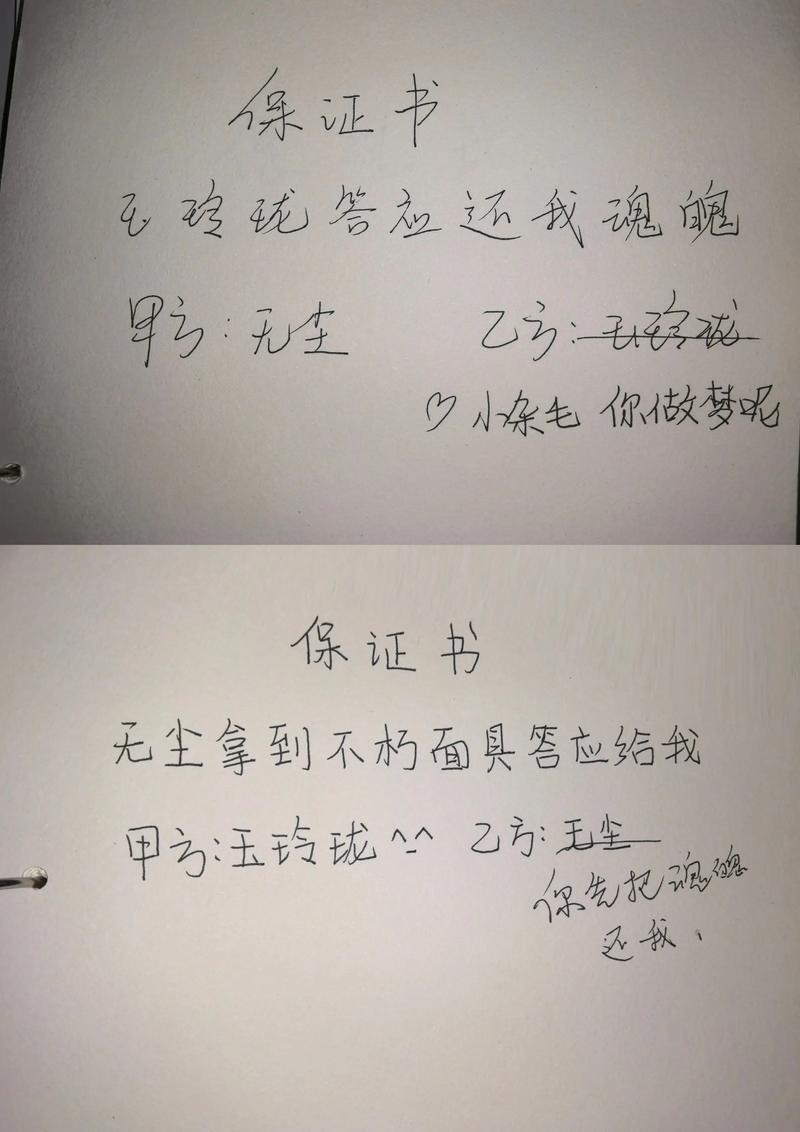 保证书
玉玲珑答应还我魂魄
甲方：无尘 乙方：玉玲珑
♡ 小杂毛 你做梦呢
保证书
无尘拿到不朽面具答应给我
甲方：玉玲珑^-^ 乙方：无尘
你先把魂魄
还我、